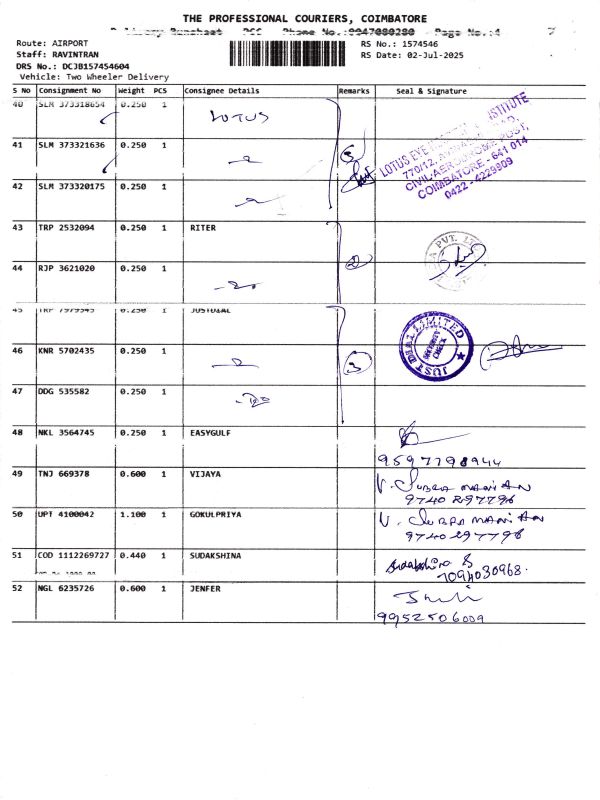 THE PROFESSIONAL COURIERS, COIMBATORE
Delivery Runsheet PCC Phone No.:9047080280 Page No.:4
Route: AIRPORT
RS No.: 1574546
Staff: RAVINTRAN
RS Date: 02-Jul-2025
DRS No.: DCJB157454604
Vehicle: Two Wheeler Delivery
S No Consignment No Weight PCS Consignee Details Remarks Seal & Signature
40 SLM 373318654 0.250 1 LOTUS
41 SLM 373321636 0.250 1 3
LOTUS EYE INSTITUTE
770/12,
CIVIL AERODROME POST,
COIMBATORE - 641 014
0422 - 4229909
42 SLM 373320175 0.250 1
43 TRP 2532094 0.250 1 RITER
PVT. LTD
44 RJP 3621020 0.250 1 2
45 TRP 7979545 0.250 1 JUSTDIAL
JUST DIAL LIMITED
SECURITY CHECK
46 KNR 5702435 0.250 1 3
47 DDG 535582 0.250 1
48 NKL 3564745 0.250 1 EASYGULF
9597798944
49 TNJ 669378 0.600 1 VIJAYA V. SUBRAMANIAN
9740297796
50 UPT 4100042 1.100 1 GOKULPRIYA V. SUBRAMANIAN
9740297796
51 COD 1112269727 0.440 1 SUDAKSHINA Sudakshina S
7094030968.
52 NGL 6235726 0.600 1 JENFER
9952506009